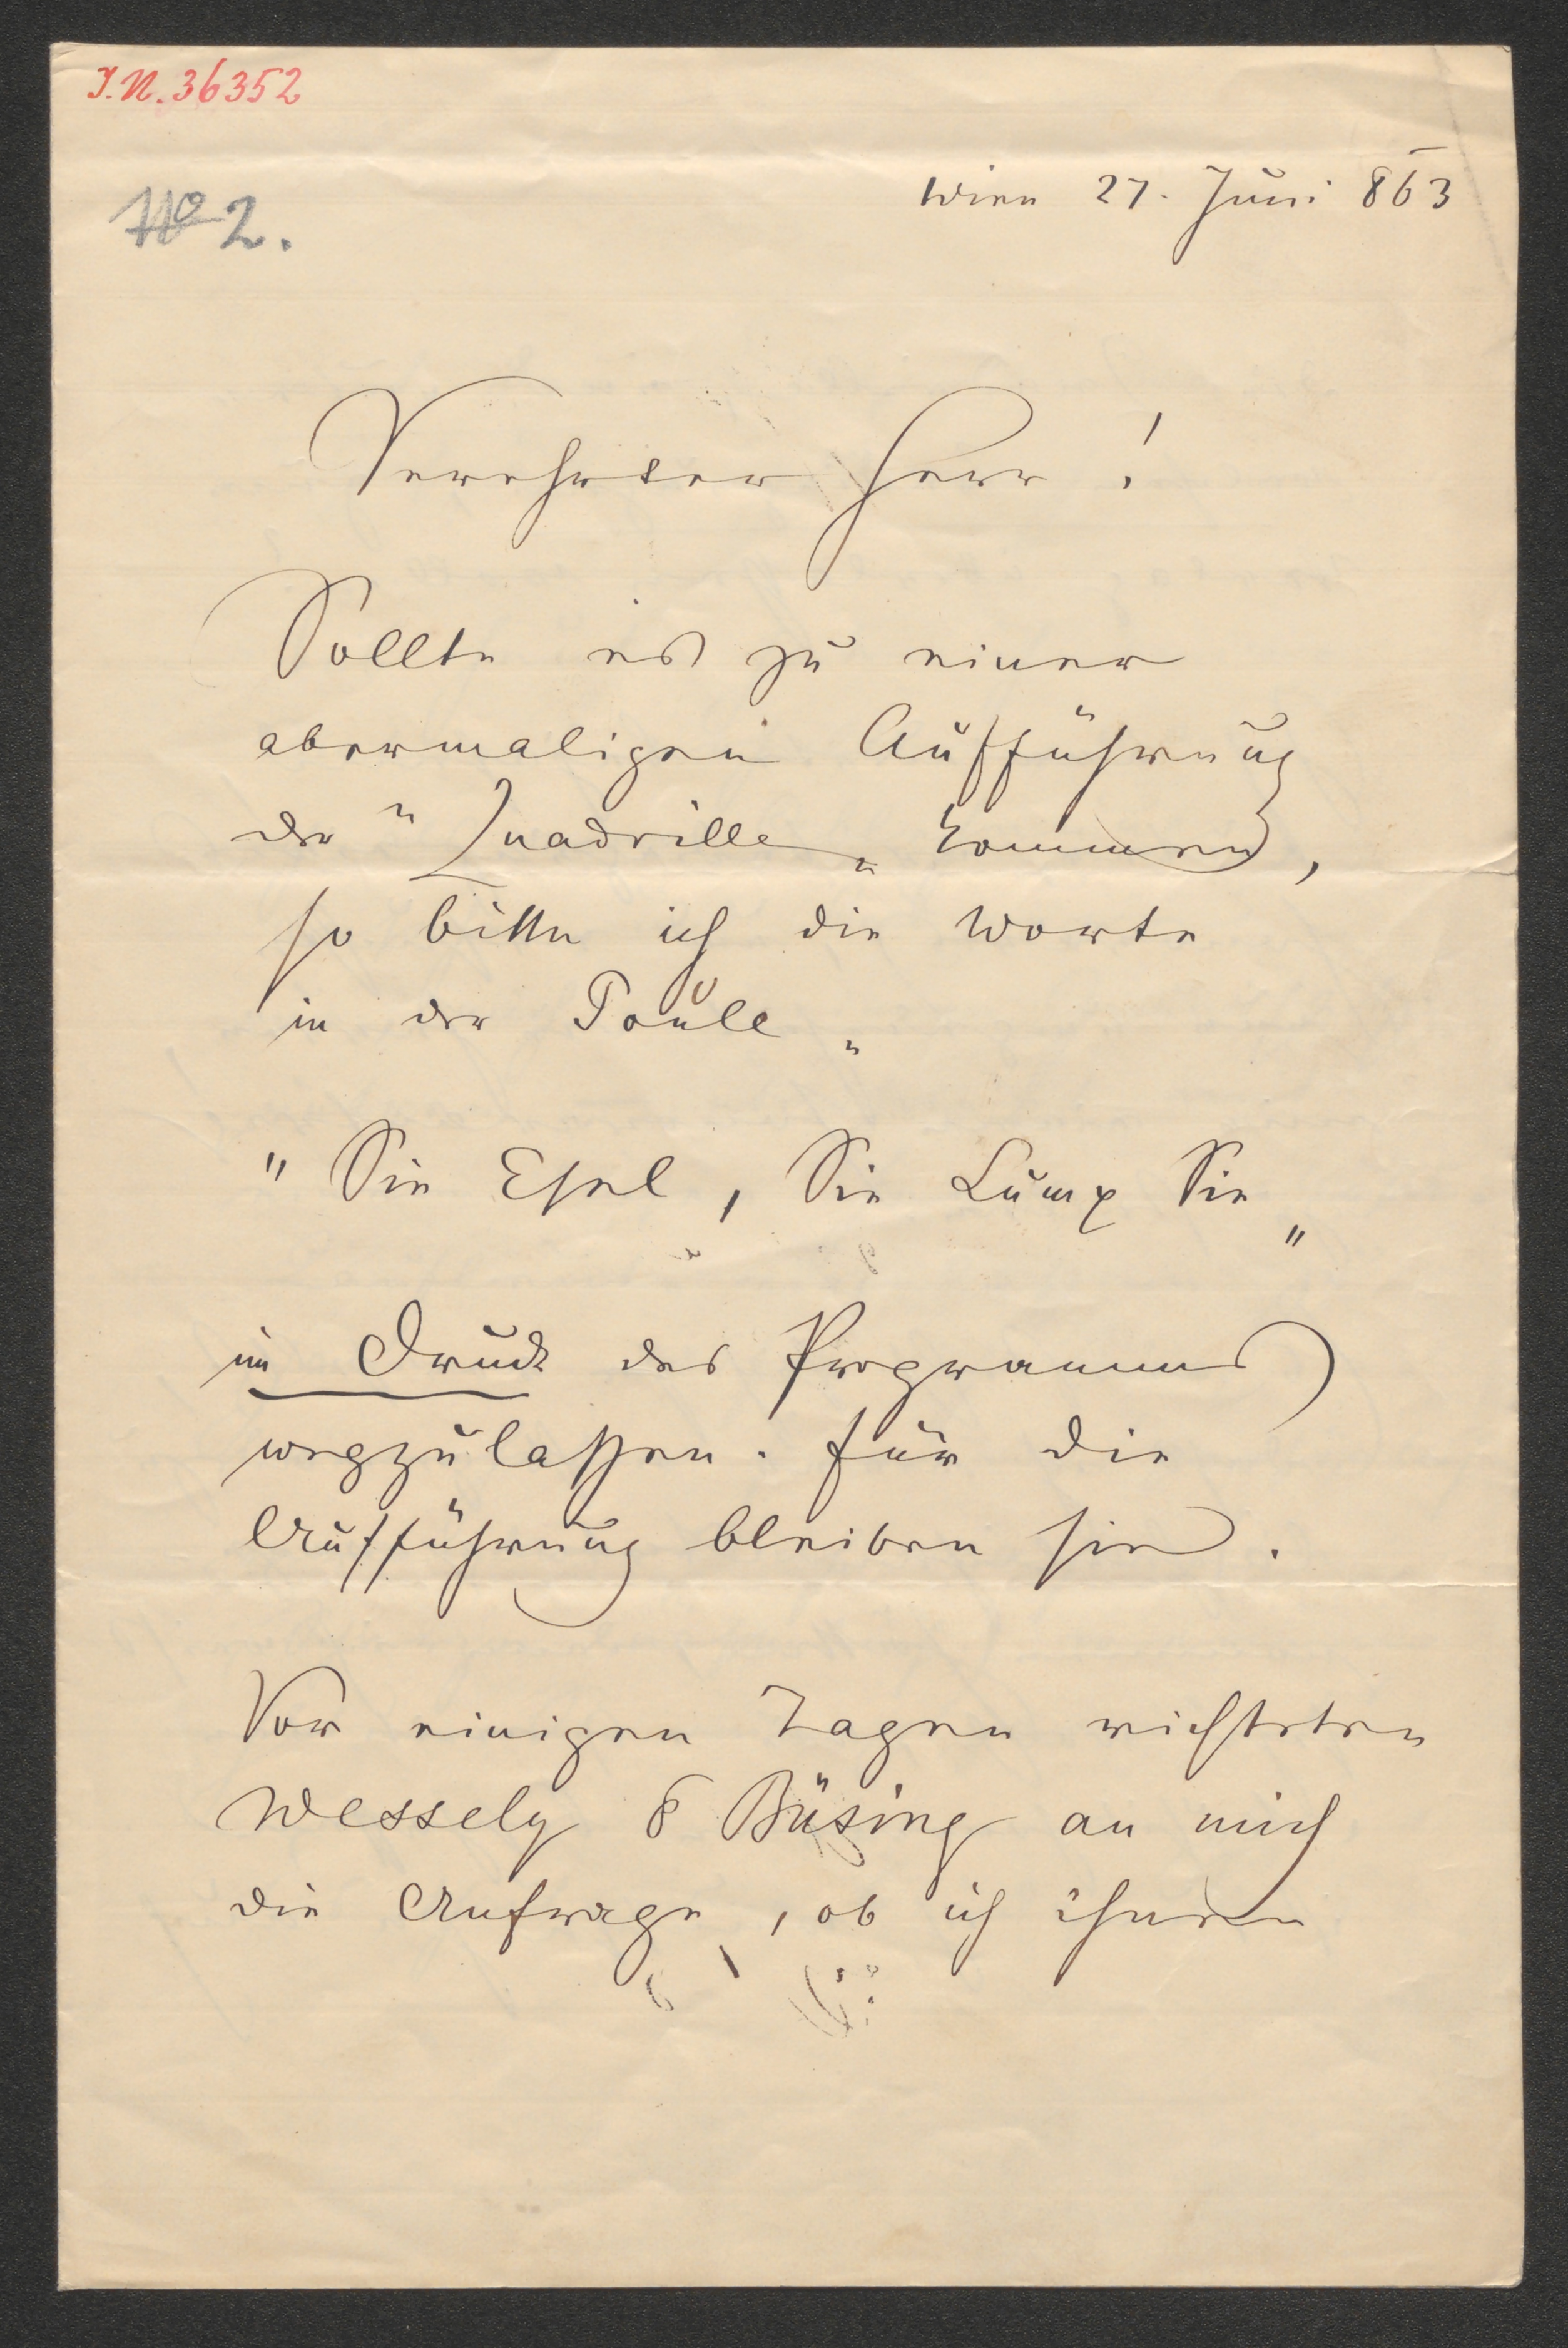 I.N. 36352
No 2.
Wien 27. Juni 863
Verehrter Herr!
Sollte es zu einer
abermaligen Aufführung
der "Quadrille" kommen,
so bitte ich die Worte
in der Poule "
"Sie Esel, Sie Lump Sie"
im Druck des Programms
wegzulassen. Für die
Aufführung bleiben sie.
Vor einigen Tagen richteten
Wessely & Büsing an mich
die Anfrage, ob ich ihnen